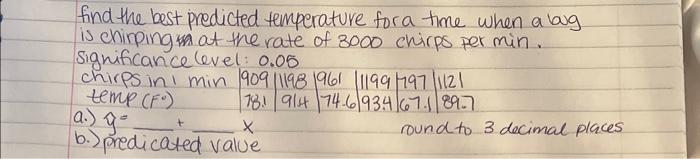 find the best predicted temperature for a time when a bug
is chirping at the rate of 3000 chirps per min.
Significance level: 0.05
chirps in 1 min |909|1198|961|1199|797|1121
temp (F°) |78.1|91.4|74.6|93.4|67.1|89.7
a.) y= ___ + ___ x round to 3 decimal places
b.) predicated value